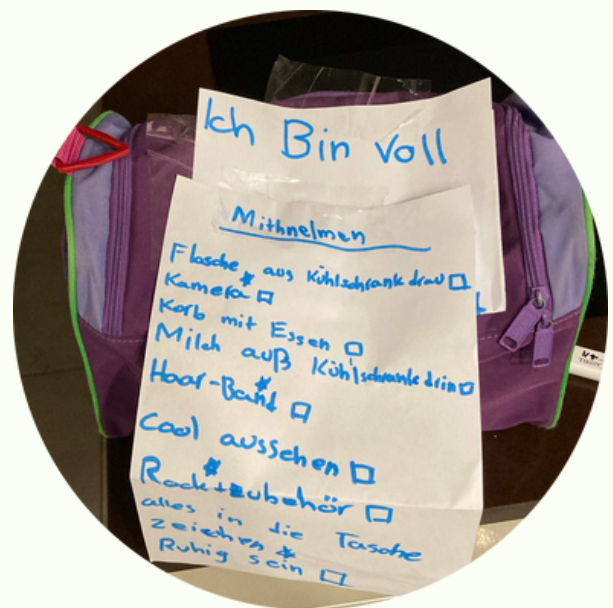 Ich Bin Voll
Mithnelmen
Flasche, aus Kühlschrank drau
Kamera *
Korb mit Essen
Milch auß Kühlschrank drin
Haar-Band *
Cool aussehen
Rock + zubehör *
alles in die Tasche
zeichen *
Ruhig sein